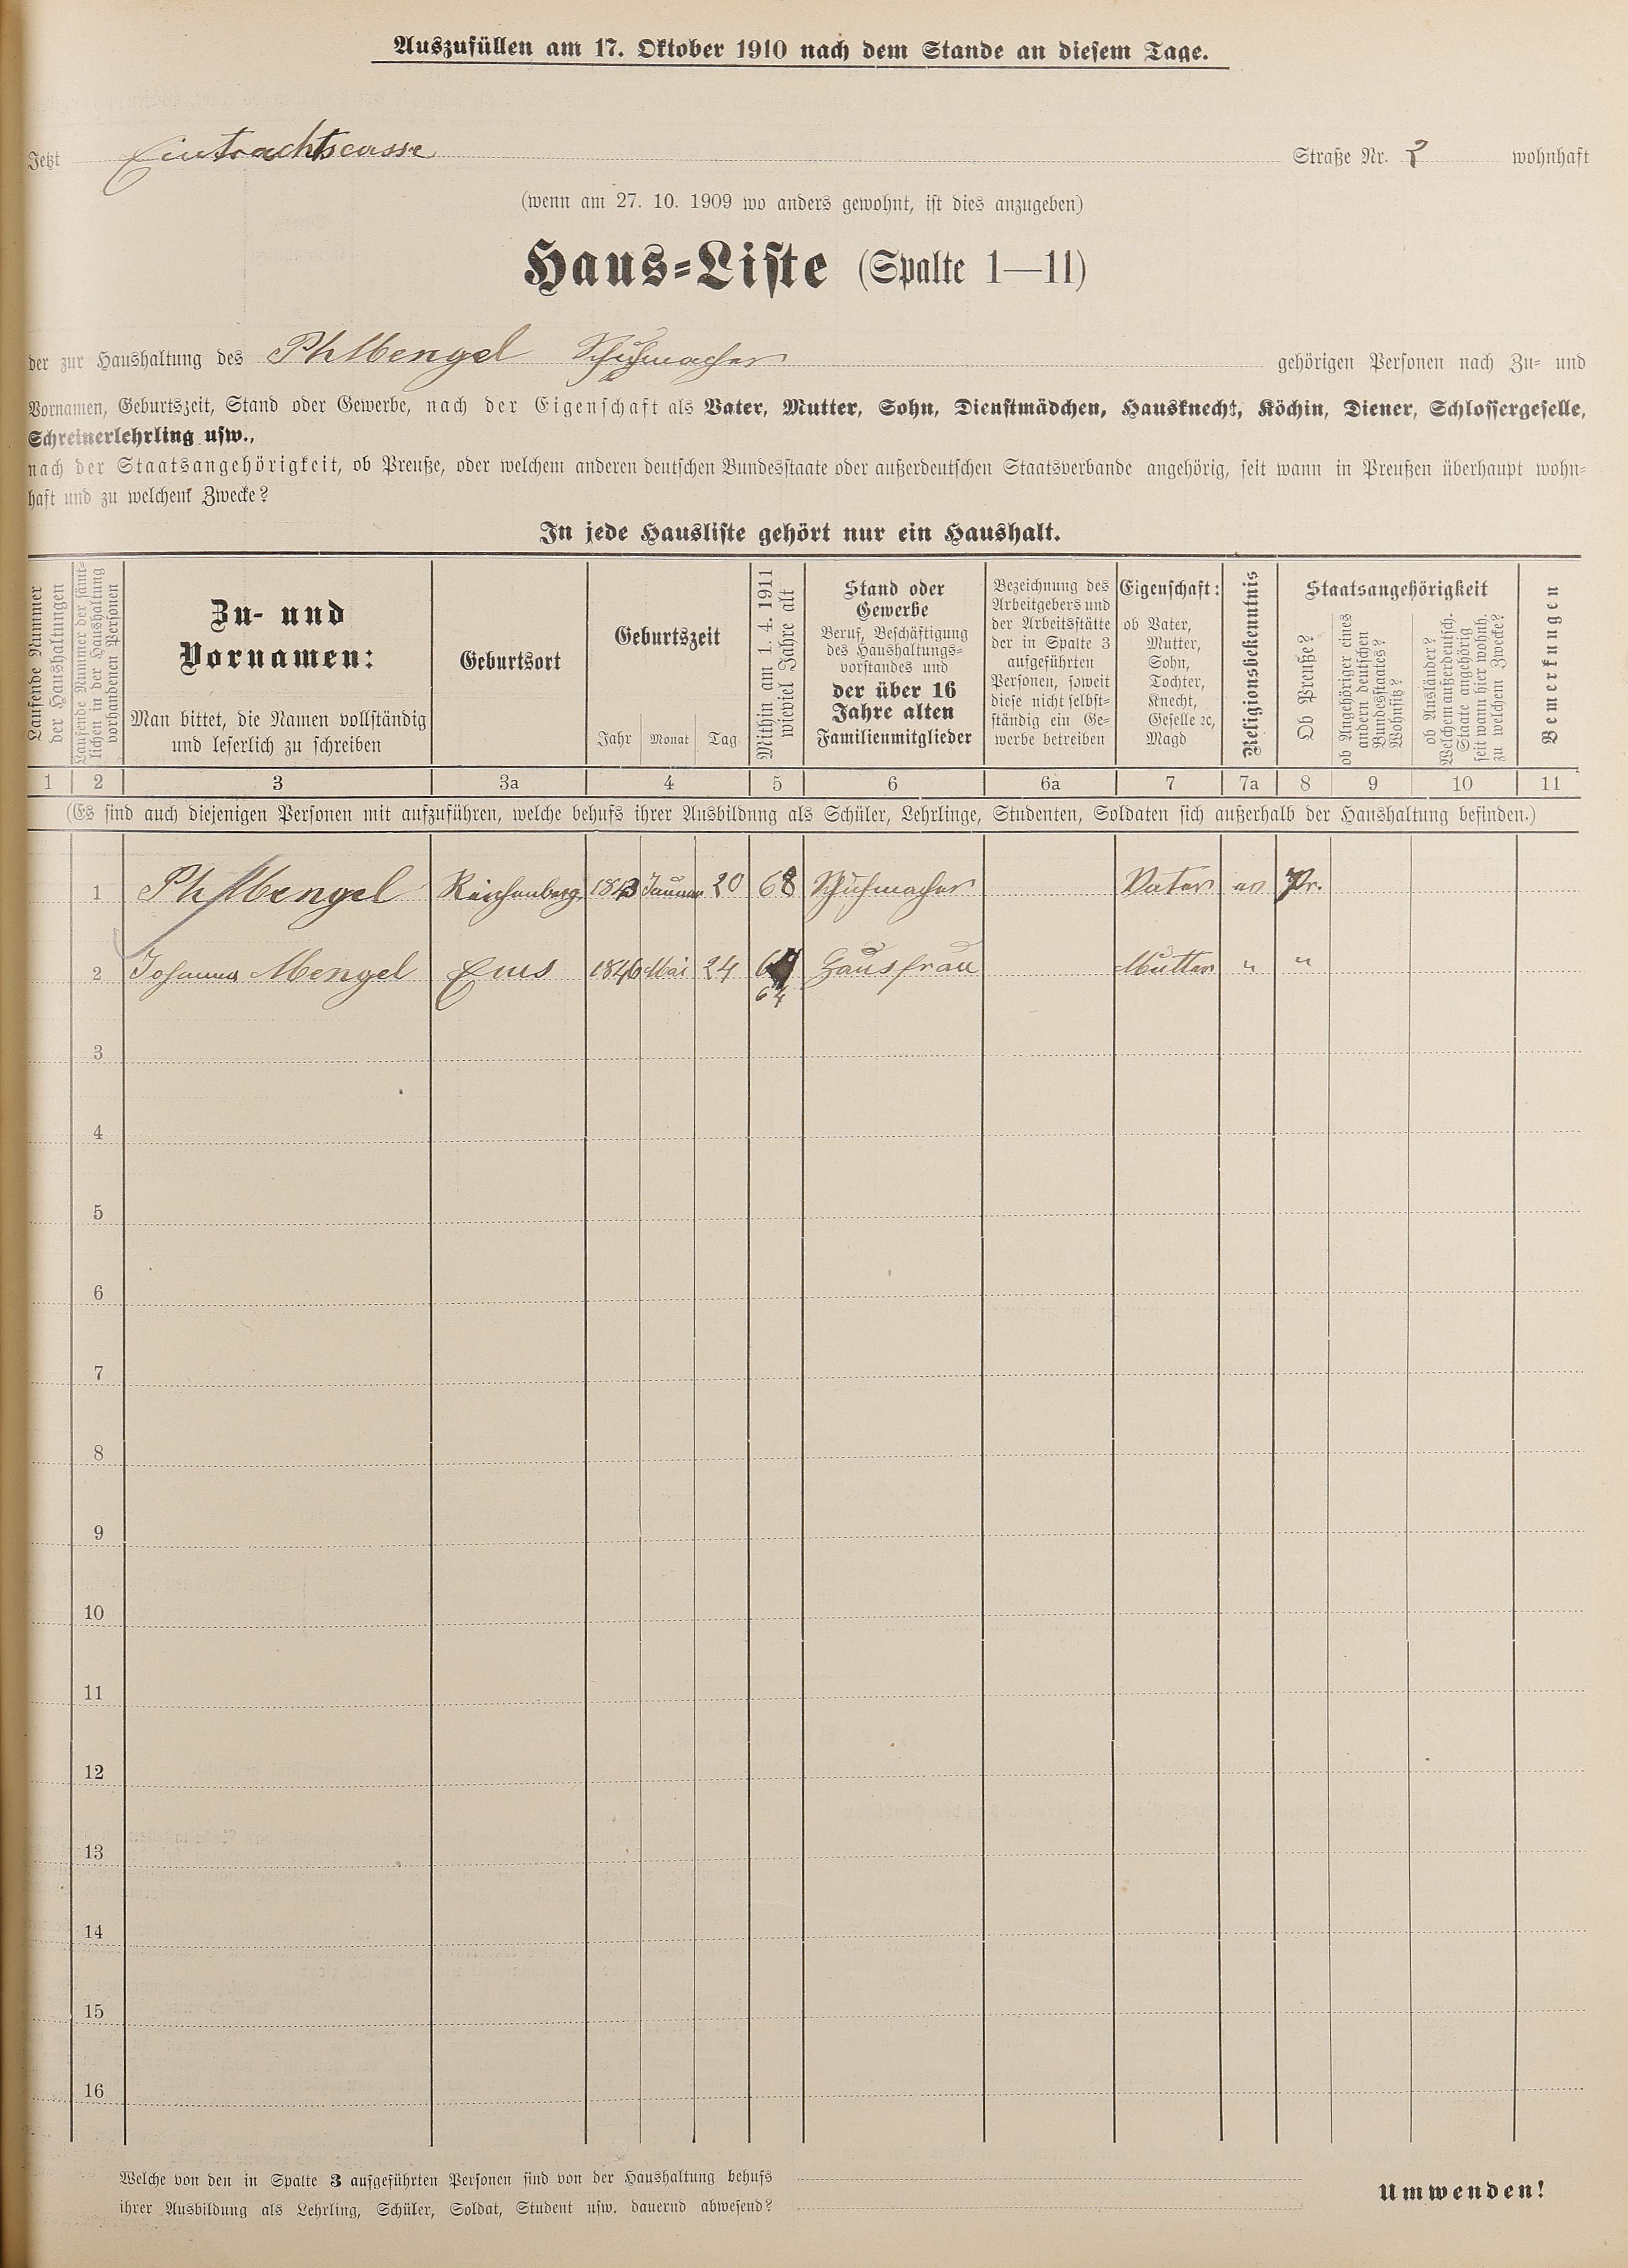 Auszufüllen am 17. Oktober 1910 nach dem Stande an diesem Tage.
Jetzt Eintrachtscasse Straße Nr. 2 wohnhaft
(wenn am 27. 10. 1909 wo anders gewohnt, ist dies anzugeben)
Haus-Liste (Spalte 1—11)
der zur Haushaltung des Ph Mengel Schuhmacher gehörigen Personen nach Zu- und
Vornamen, Geburtszeit, Stand oder Gewerbe, nach der Eigenschaft als Vater, Mutter, Sohn, Dienstmädchen, Hausknecht, Köchin, Diener, Schlossergeselle,
Schreinerlehrling usw.,
nach der Staatsangehörigkeit, ob Preuße, oder welchem anderen deutschen Bundesstaate oder außerdeutschen Staatsverbande angehörig, seit wann in Preußen überhaupt wohn-
haft und zu welchem Zwecke?
In jede Hausliste gehört nur ein Haushalt.
Laufende Nummer
der Haushaltungen
Laufende Nummer der sämt-
lichen in der Haushaltung
vorhandenen Personen
Zu- und
Vornamen:
Man bittet, die Namen vollständig
und leserlich zu schreiben
Geburtsort
Geburtszeit
Jahr Monat Tag
Mithin am 1. 4. 1911
wieviel Jahre alt
Stand oder
Gewerbe
Beruf, Beschäftigung
des Haushaltungs-
vorstandes und
der über 16
Jahre alten
Familienmitglieder
Bezeichnung des
Arbeitgebers und
der Arbeitsstätte
der in Spalte 3
aufgeführten
Personen, soweit
diese nicht selbst-
ständig ein Ge-
werbe betreiben
Eigenschaft:
ob Vater,
Mutter,
Sohn,
Tochter,
Knecht,
Geselle ꝛc,
Magd
Religionsbekenntnis
Staatsangehörigkeit
Ob Preuße?
ob Angehöriger eines
andern deutschen
Bundesstaates?
Wohnsitz?
ob Ausländer?
Welchem außerdeutsch.
Staate angehörig
seit wann hier wohnh.
zu welchem Zwecke?
Bemerkungen
1 2 3 3a 4 5 6 6a 7 7a 8 9 10 11
(Es sind auch diejenigen Personen mit aufzuführen, welche behufs ihrer Ausbildung als Schüler, Lehrlinge, Studenten, Soldaten sich außerhalb der Haushaltung befinden.)
1 Ph Mengel Reichenberg 1843 Januar 20 68 Schuhmacher Vater ev Pr.
2 Johanna Mengel Ems 1846 Mai 24 Hausfrau Mutter " "
64
3
4
5
6
7
8
9
10
11
12
13
14
15
16
Welche von den in Spalte 3 aufgeführten Personen sind von der Haushaltung behufs
ihrer Ausbildung als Lehrling, Schüler, Soldat, Student usw. dauernd abwesend?
Umwenden!